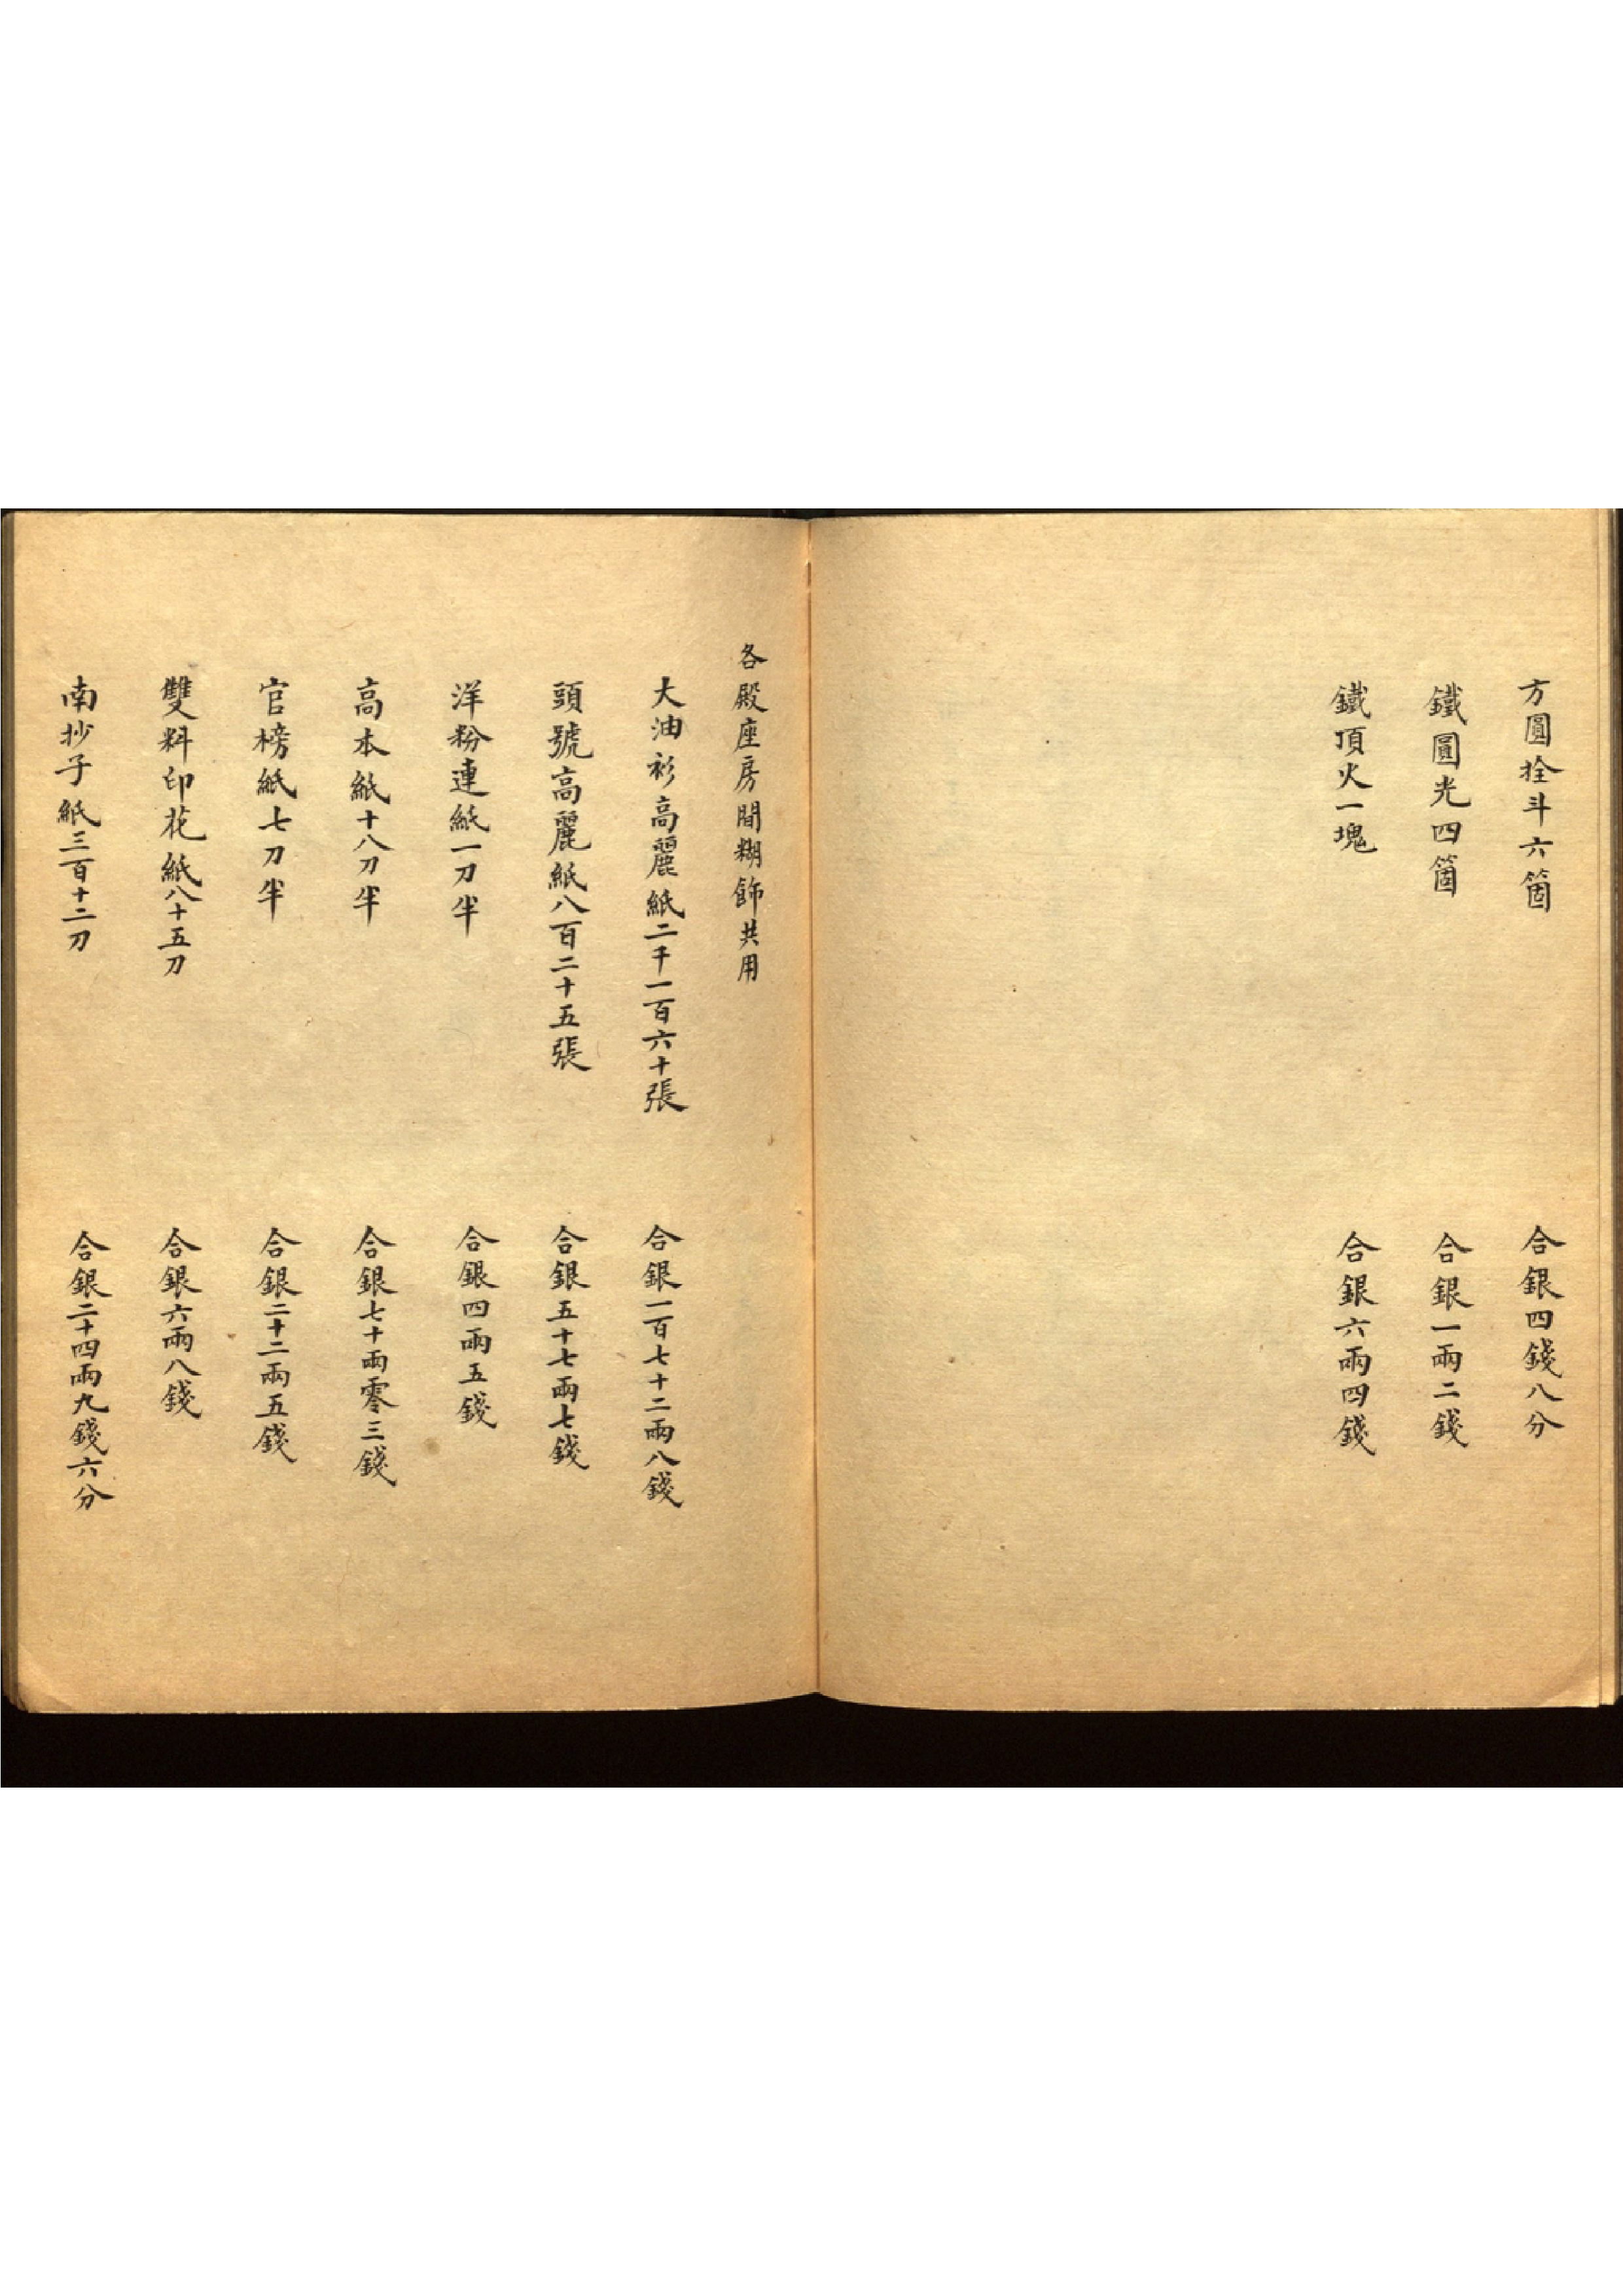 方圓拴斗六箇　合銀四錢八分
鐵圓光四箇　合銀一兩二錢
鐵頂火一塊　合銀六兩四錢
各殿座房間糊飾共用
大油衫高麗紙二千一百六十張　合銀一百七十二兩八錢
頭號高麗紙八百二十五張　合銀五十七兩七錢
洋粉連紙一刀半　合銀四兩五錢
高本紙十八刀半　合銀七十兩零三錢
官榜紙七刀半　合銀二十二兩五錢
雙料印花紙八十五刀　合銀六兩八錢
南抄子紙三百十二刀　合銀二十四兩九錢六分